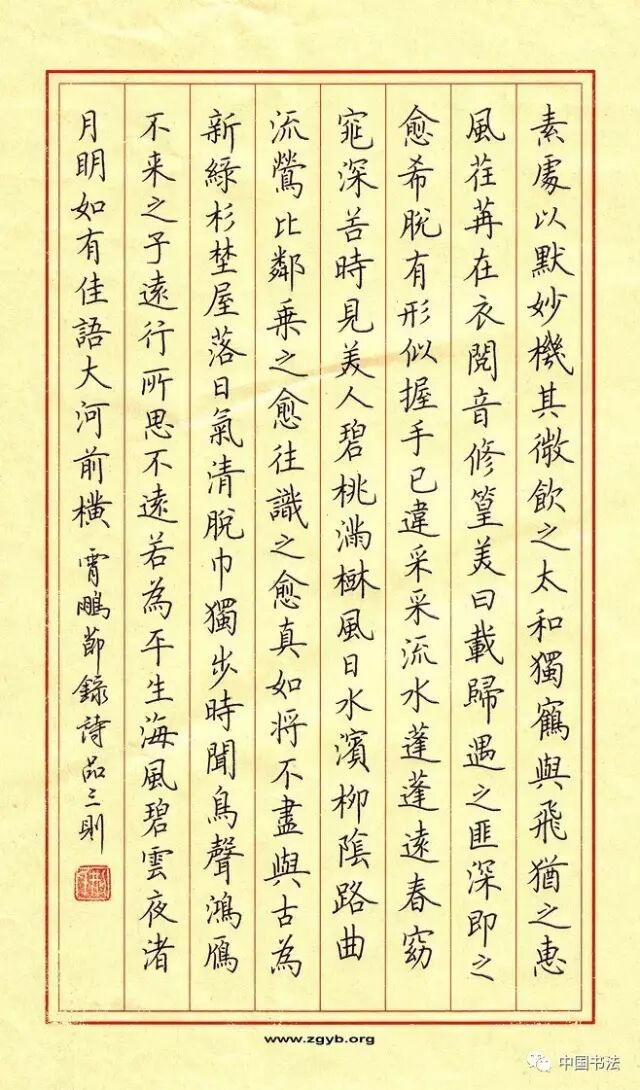 素處以默妙機其微飲之太和獨鶴與飛猶之惠
風荏苒在衣閱音修篁美曰載歸遇之匪深即之
愈希脫有形似握手已違采采流水蓬蓬遠春窈
窕深谷時見美人碧桃滿樹風日水濱柳陰路曲
流鶯比鄰乗之愈往識之愈真如將不盡與古為
新綠杉埜屋落日氣清脫巾獨步時聞鳥聲鴻鴈
不来之子遠行所思不遠若為平生海風碧雲夜渚
月明如有佳語大河前橫 霄鵬節錄詩品三則
www.zgyb.org
中国书法